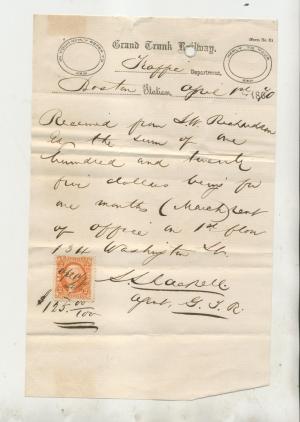 (Form No. 21)
Grand Trunk Railway.
Department,
Boston Station, April 1st 1870
Received from S.W. Richardson
Esq the sum of one
hundred and twenty
five dollars being for
one months (March) rent
of office on 1st floor
134 Washington St.
Agent, G.T.R.
$125.00/100